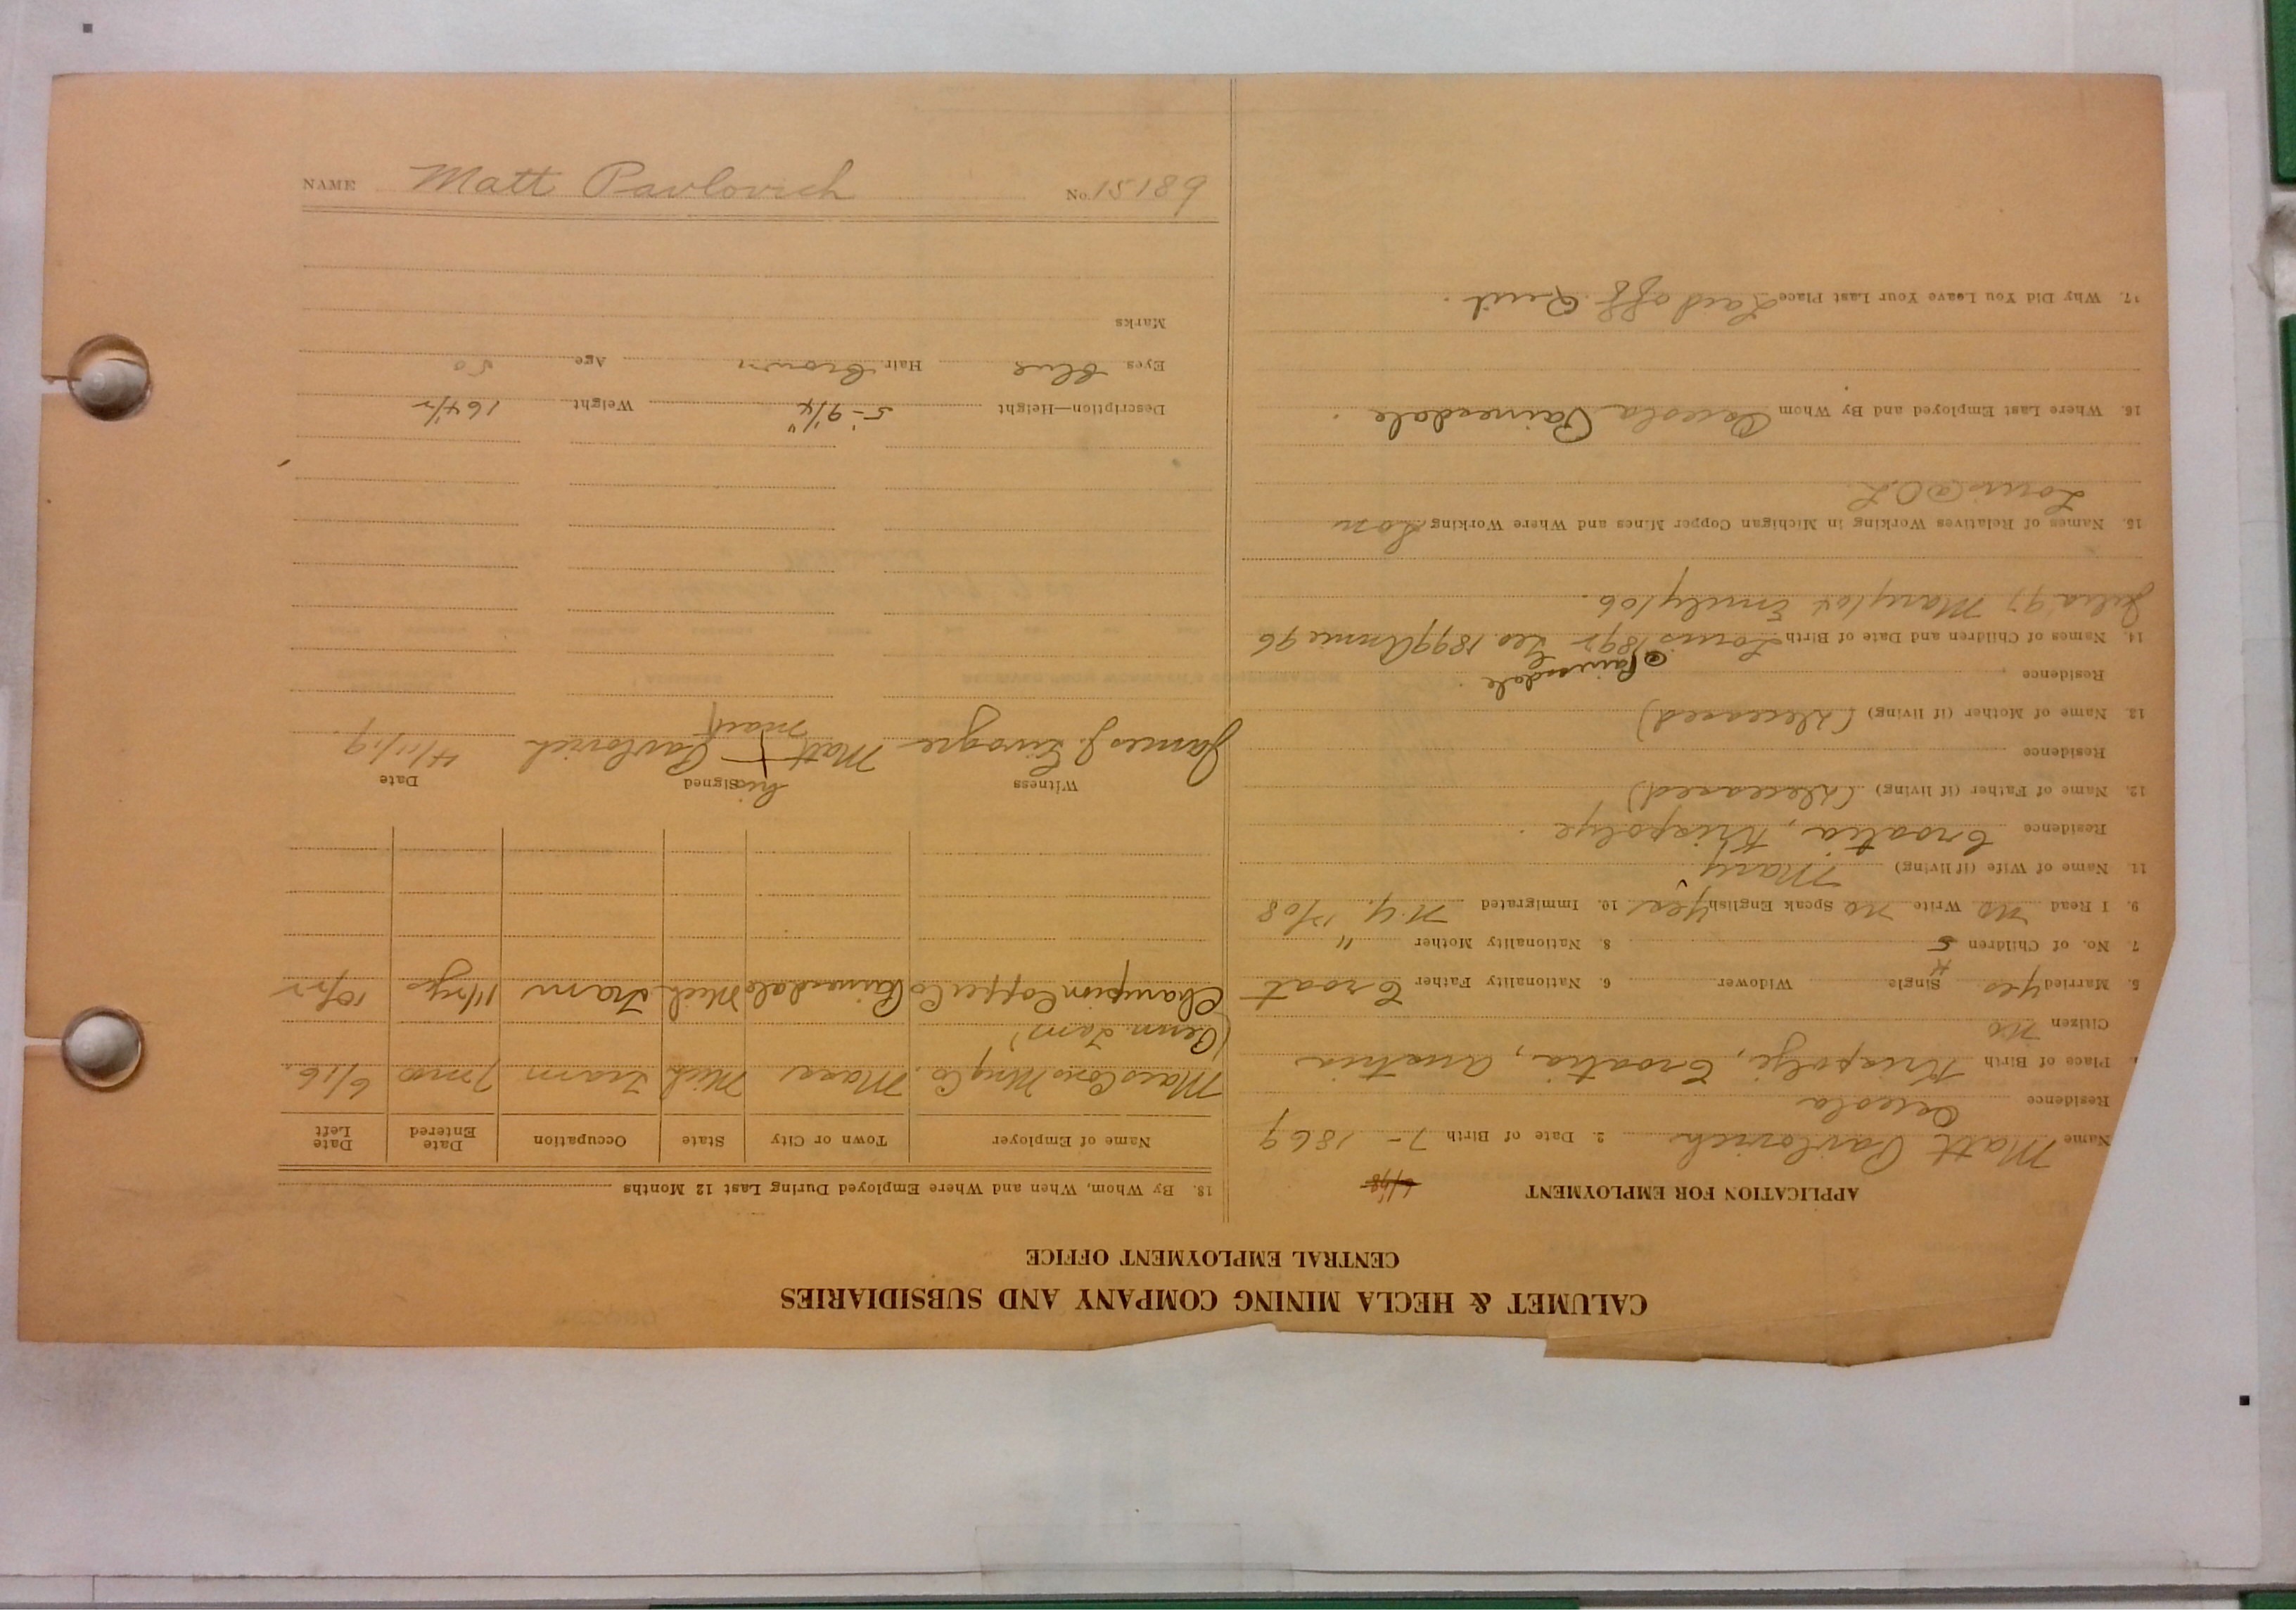 CALUMET & HECLA MINING COMPANY AND SUBSIDIARIES
CENTRAL EMPLOYMENT OFFICE
APPLICATION FOR EMPLOYMENT
Name Matt Pavlovich 2. Date of Birth 7 - 1869
Residence Osceola
Place of Birth Krispolje, Croatia, Austria
Citizen no
5. Married yes Single Widower 6. Nationality Father Croat
7. No. of Children 5 8. Nationality Mother "
9. I Read no Write no Speak English yes 10. Immigrated N.Y.
11. Name of Wife (if living) Mary
Residence Croatia, Krispolye.
12. Name of Father (if living) (deceased)
Residence
13. Name of Mother (if living) (deceased)
Residence Painesdale.
14. Names of Children and Date of Birth Louis 1892 Leo 1899 Annie 96
Julia 97 Mary/02 Emily/06.
15. Names of Relatives Working in Michigan Copper Mines and Where Working Son
Louis @ O.L.
16. Where Last Employed and By Whom Osceola Painesdale.
17. Why Did You Leave Your Last Place Laid off. Quit.
18. By Whom, When and Where Employed During Last 12 Months
Name of Employer Town or City State Occupation Date Entered Date Left
Mass Cons Mng Co. Mass Mich Tram 7 mos 6/16.
Champion Copper Co Painesdale Mich Tram
Witness Signed Date
his
James J. Matt + Pavlovich 4/11/19.
mark
Description—Height 5'-9 1/4" Weight 164 1/2
Eyes blue Hair brown Age 50
Marks
NAME Matt Pavlovich No. 15189